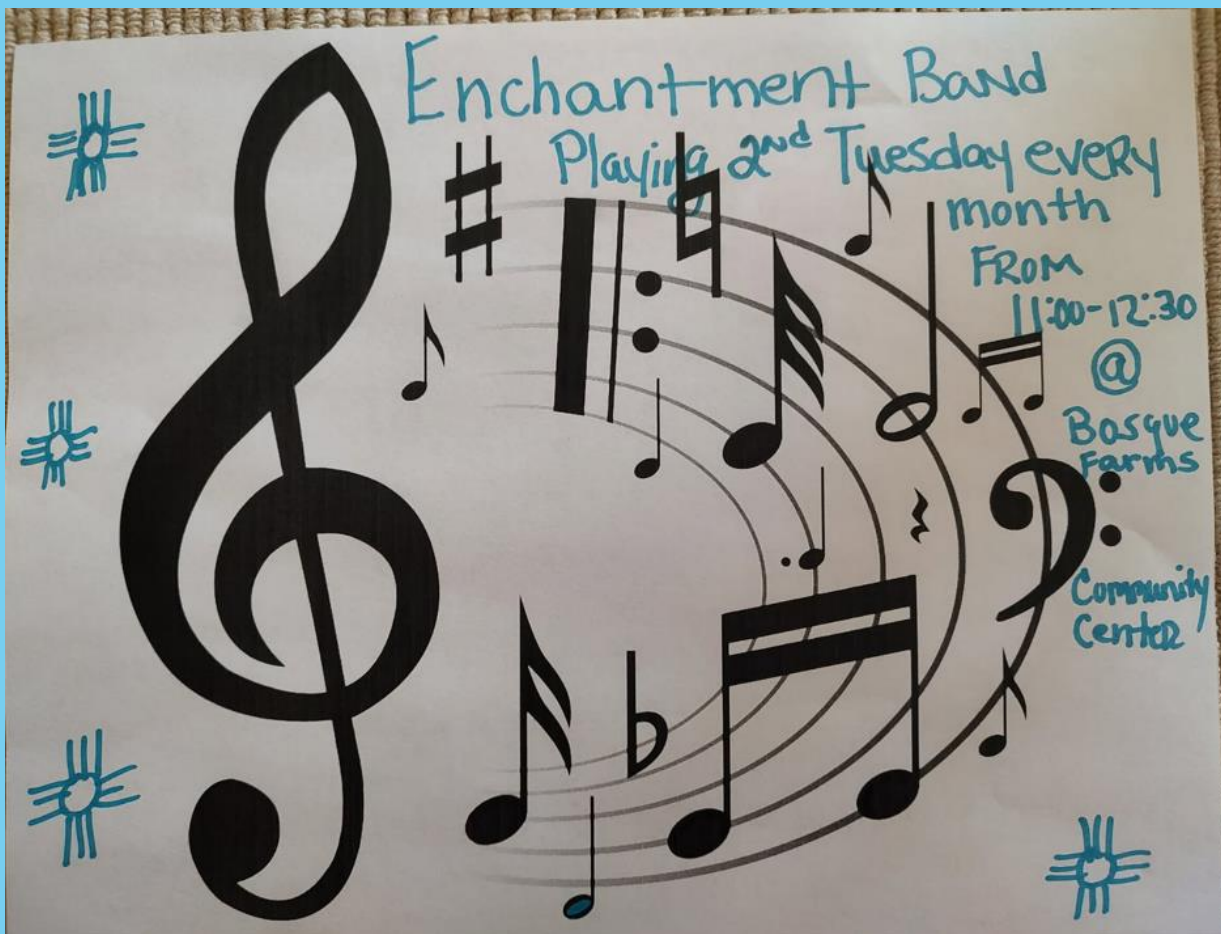 Enchantment Band
Playing 2nd Tuesday every
month
From
11:00-12:30
@
Bosque
Farms
Community
Center